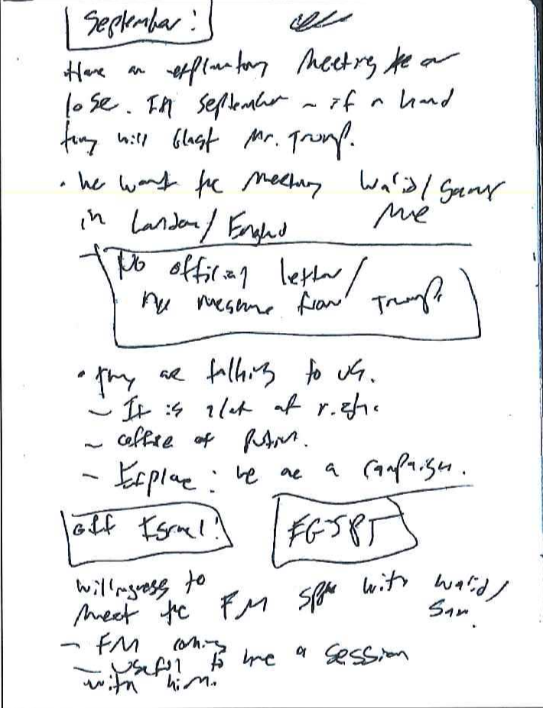 September:
Have an exploratory meeting to or
lose. In September – if a hand
they will blast Mr. Trump.
• We want the meeting Walid/Sam
me
in London/England
No official letter/
no message from Trump.
• they are talking to us.
– It is a lot of risk.
– office of Putin.
– Explore: we are a campaign.
off Israel!
EGYPT
Willingness to
meet the FM sp with Walid/
Sam.
– FM coming
– Useful to have a session
with him.